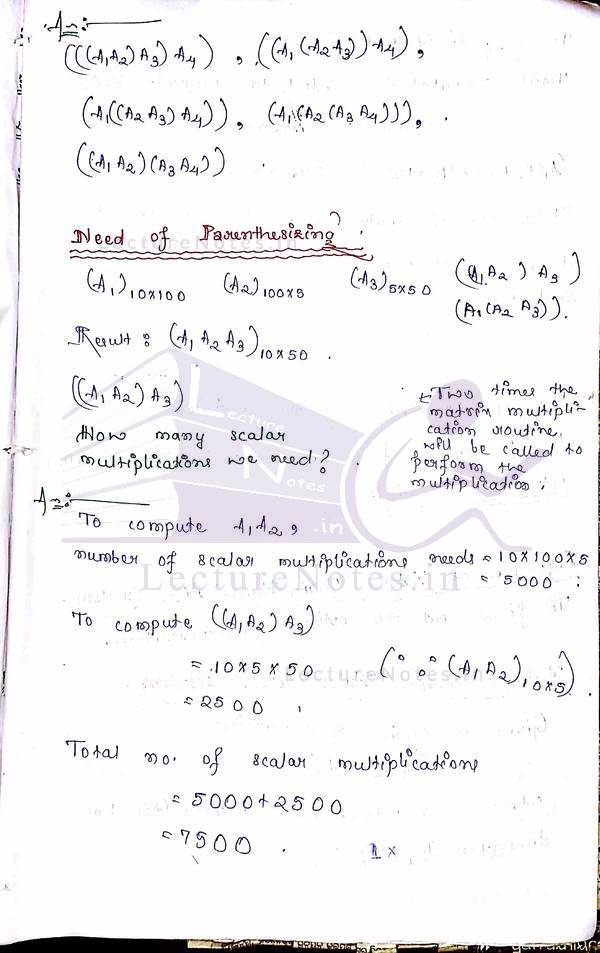 Ans:
(((A1A2) A3) A4) , ((A1 (A2A3)) A4) ,
(A1((A2 A3) A4)), (A1(A2 (A3 A4))), .
((A1 A2) (A3 A4)) .
Need of Parenthesizing
LectureNotes.in
(A1)10x100 (A2)100x5 (A3)5x50 ((A1A2) A3)
(A1(A2 A3)).
Result : (A1 A2 A3)10x50 .
((A1 A2) A3)
How many scalar
multiplications we need? .
Two times the
matrix multipli-
cation routine,
will be called to
perform the
multiplication ;
Lecture
Notes
.in
Ans:
To compute A1A2,
number of scalar multiplications needs = 10x100x5
= 5000 ;
LectureNotes.in
To compute ((A1A2) A3)
= 10x5x50 (∵ (A1A2)10x5)
LectureNotes.in
= 2500 ,
Total no. of scalar multiplications
= 5000+2500
= 7500 . 1x